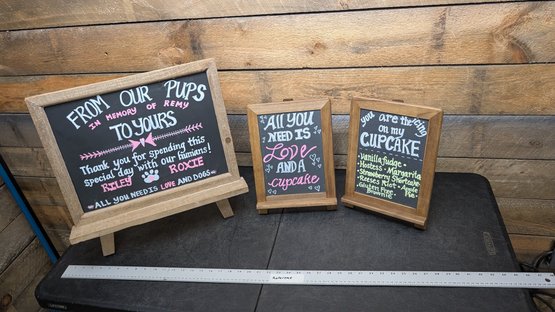 FROM OUR PUPS
IN MEMORY OF REMY
TO YOURS
Thank you for spending this
special day with our humans!
RILEY ROXIE
ALL YOU NEED IS LOVE AND DOGS
ALL YOU
NEED IS
Love
AND A
cupcake
you are the icing
on my
CUPCAKE
Vanilla fudge
Hostess Margarita
Strawberry Shortcake
Reeses Riot Apple
Gluten Free Pie
Brownie